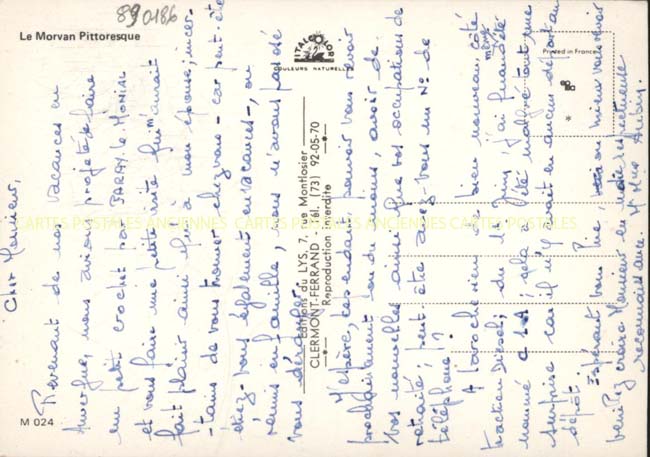 890186
Le Morvan Pittoresque
ITALCOLOR
COULEURS NATURELLES
Printed in France
Editions du LYS, 7, rue Montlosier
CLERMONT-FERRAND - Tél. (73) 92-05-70
Reproduction interdite
M 024
CARTES POSTALES ANCIENNES CARTES POSTALES ANCIENNES CARTES POSTALES ANCIENNES
Cher Monsieur,
Revenant de nos vacances en
Auvergne, nous avions projeté faire
un petit crochet par PARAY le MONIAL
et vous faire une petite visite qui m'aurait
fait plaisir ainsi qu'à mon épouse; incer-
-tains de vous trouver chez vous - car peut-être
étiez-vous également en vacances -, ou
réunis en famille, nous n'avons pas osé
vous déranger.
J'espère, cependant, pouvoir vous revoir
prochainement ou du moins, avoir de
vos nouvelles ainsi que vos occupations de
retraité; peut-être avez-vous un No de
téléphone !?
A Laroche rien bien nouveau, côté
traction Diesel; du 1er Juin j'ai finalement été
nommé ; cela a été malgré tout une
surprise car il n'y avait eu aucun départ au
dépôt.
Espérant vous lire, ou mieux vous revoir
veuillez croire Monsieur en notre respectueuse
reconnaissance. Mr Mme